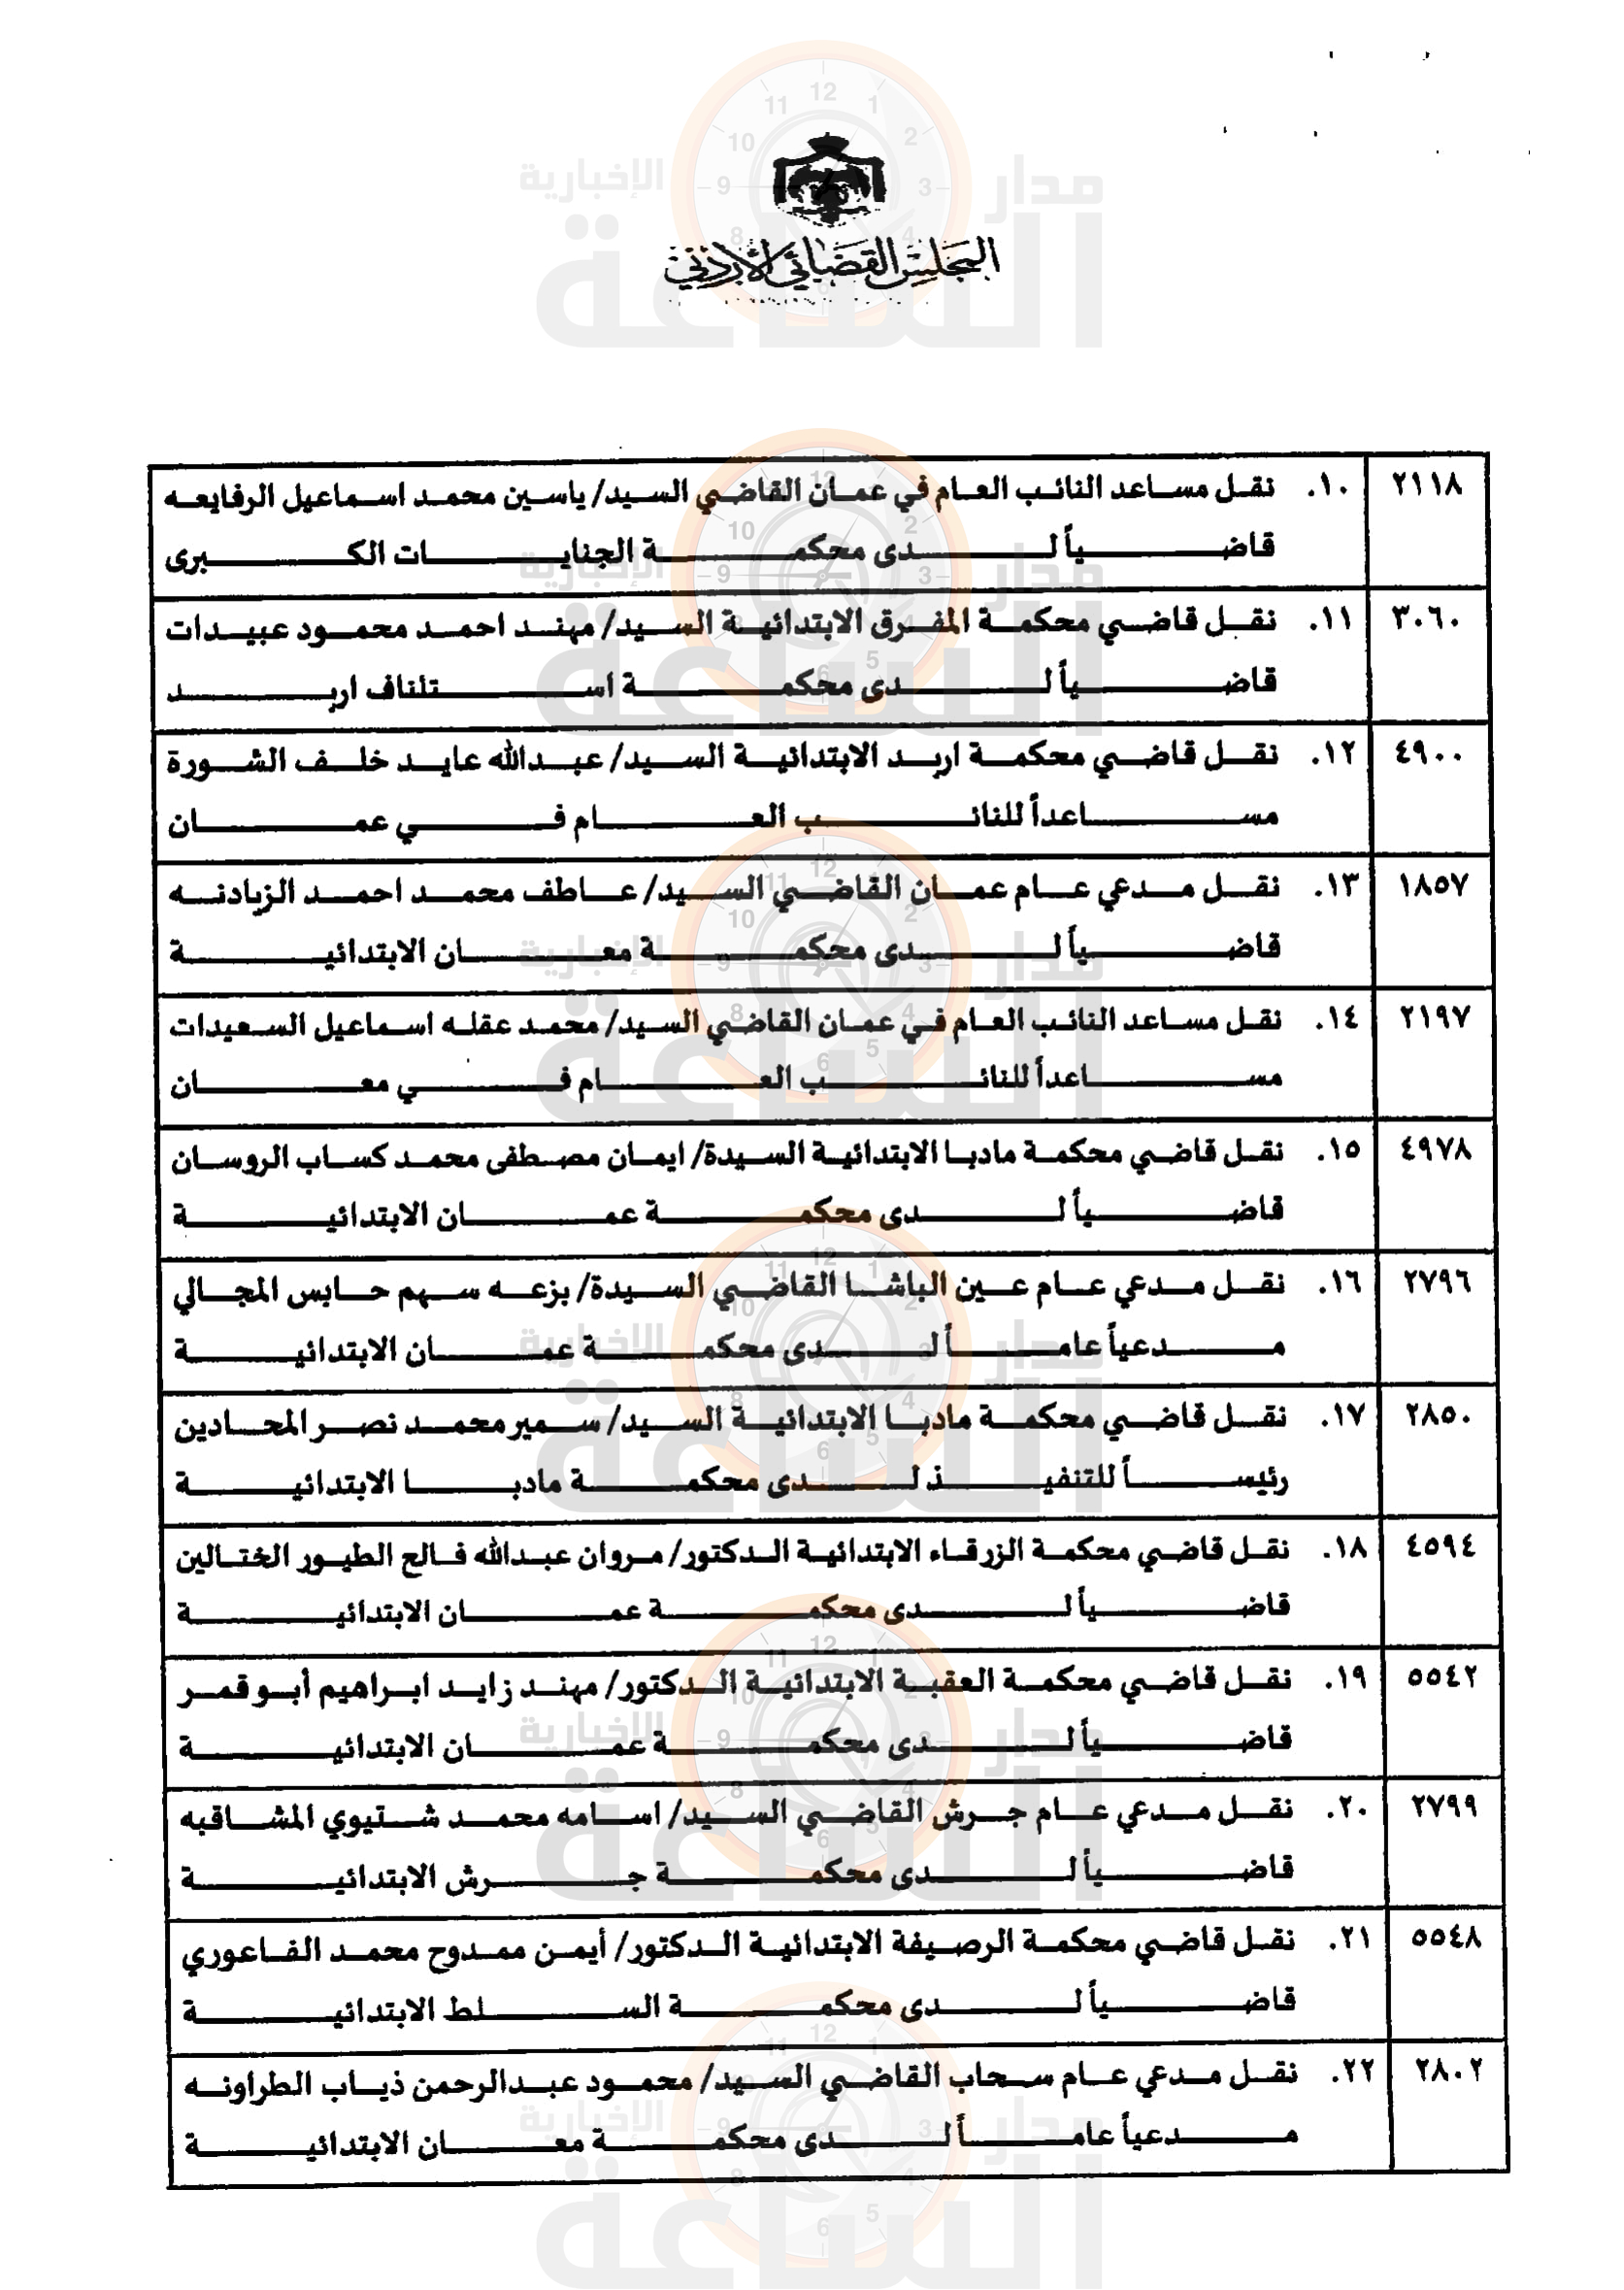 المجلس القضائي الأردني
٢١١٨ ١٠. نقل مساعد النائب العام في عمان القاضي السيد/ ياسين محمد اسماعيل الرفايعه
قاضياً لدى محكمة الجنايات الكبرى
٣٠٦٠ ١١. نقل قاضي محكمة المفرق الابتدائية السيد/ مهند احمد محمود عبيدات
قاضياً لدى محكمة استئناف اربد
٤٩٠٠ ١٢. نقل قاضي محكمة اربد الابتدائية السيد/ عبدالله عايد خلف الشورة
مساعداً للنائب العام في عمان
١٨٥٧ ١٣. نقل مدعي عام عمان القاضي السيد/ عاطف محمد احمد الزيادنه
قاضياً لدى محكمة معان الابتدائية
٢١٩٧ ١٤. نقل مساعد النائب العام في عمان القاضي السيد/ محمد عقله اسماعيل السعيدات
مساعداً للنائب العام في معان
٤٩٧٨ ١٥. نقل قاضي محكمة مادبا الابتدائية السيدة/ ايمان مصطفى محمد كساب الروسان
قاضياً لدى محكمة عمان الابتدائية
٢٧٩٦ ١٦. نقل مدعي عام عين الباشا القاضي السيدة/ بزعه سهم حابس المجالي
مدعياً عاماً لدى محكمة عمان الابتدائية
٢٨٥٠ ١٧. نقل قاضي محكمة مادبا الابتدائية السيد/ سمير محمد نصر المحادين
رئيساً للتنفيذ لدى محكمة مادبا الابتدائية
٤٥٩٤ ١٨. نقل قاضي محكمة الزرقاء الابتدائية الدكتور/ مروان عبدالله فالح الطيور الختالين
قاضياً لدى محكمة عمان الابتدائية
٥٥٤٢ ١٩. نقل قاضي محكمة العقبة الابتدائية الدكتور/ مهند زايد ابراهيم أبو قمر
قاضياً لدى محكمة عمان الابتدائية
٢٧٩٩ ٢٠. نقل مدعي عام جرش القاضي السيد/ اسامه محمد شتيوي المشاقبه
قاضياً لدى محكمة جرش الابتدائية
٥٥٤٨ ٢١. نقل قاضي محكمة الرصيفة الابتدائية الدكتور/ أيمن ممدوح محمد الفاعوري
قاضياً لدى محكمة السلط الابتدائية
٢٨٠٢ ٢٢. نقل مدعي عام سحاب القاضي السيد/ محمود عبدالرحمن ذياب الطراونه
مدعياً عاماً لدى محكمة معان الابتدائية
مدار الساعة الإخبارية